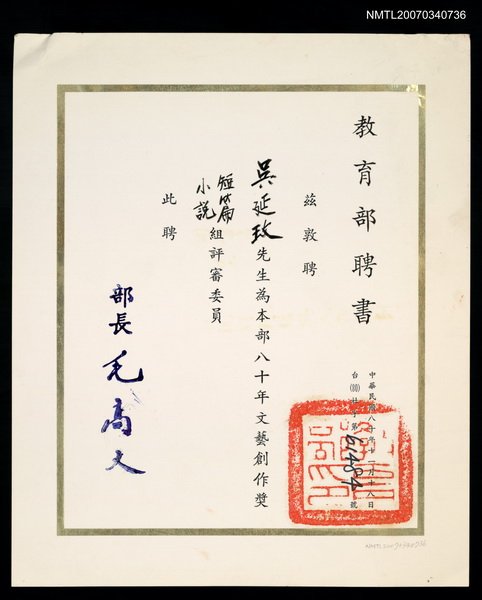 NMTL20070340736
教育部聘書
中華民國八十年十一月十八日
台(80)社字第61484號
茲敦聘
吳延玫先生為本部八十年文藝創作獎
短篇小說組評審委員
此聘
部長 毛高文
NMTL20070340736